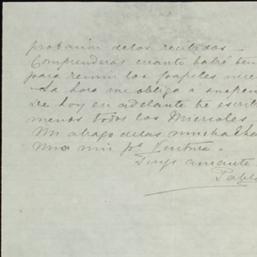 probarán de las recibidas _
Comprenderás cuanto habré
para reunir los papeles
La hora me obliga a suspen
De hoy en adelante te escri
menos todos los Miercoles
Mi abrazo de las muchachas
Ventura _
Tuyo amante
Pablo